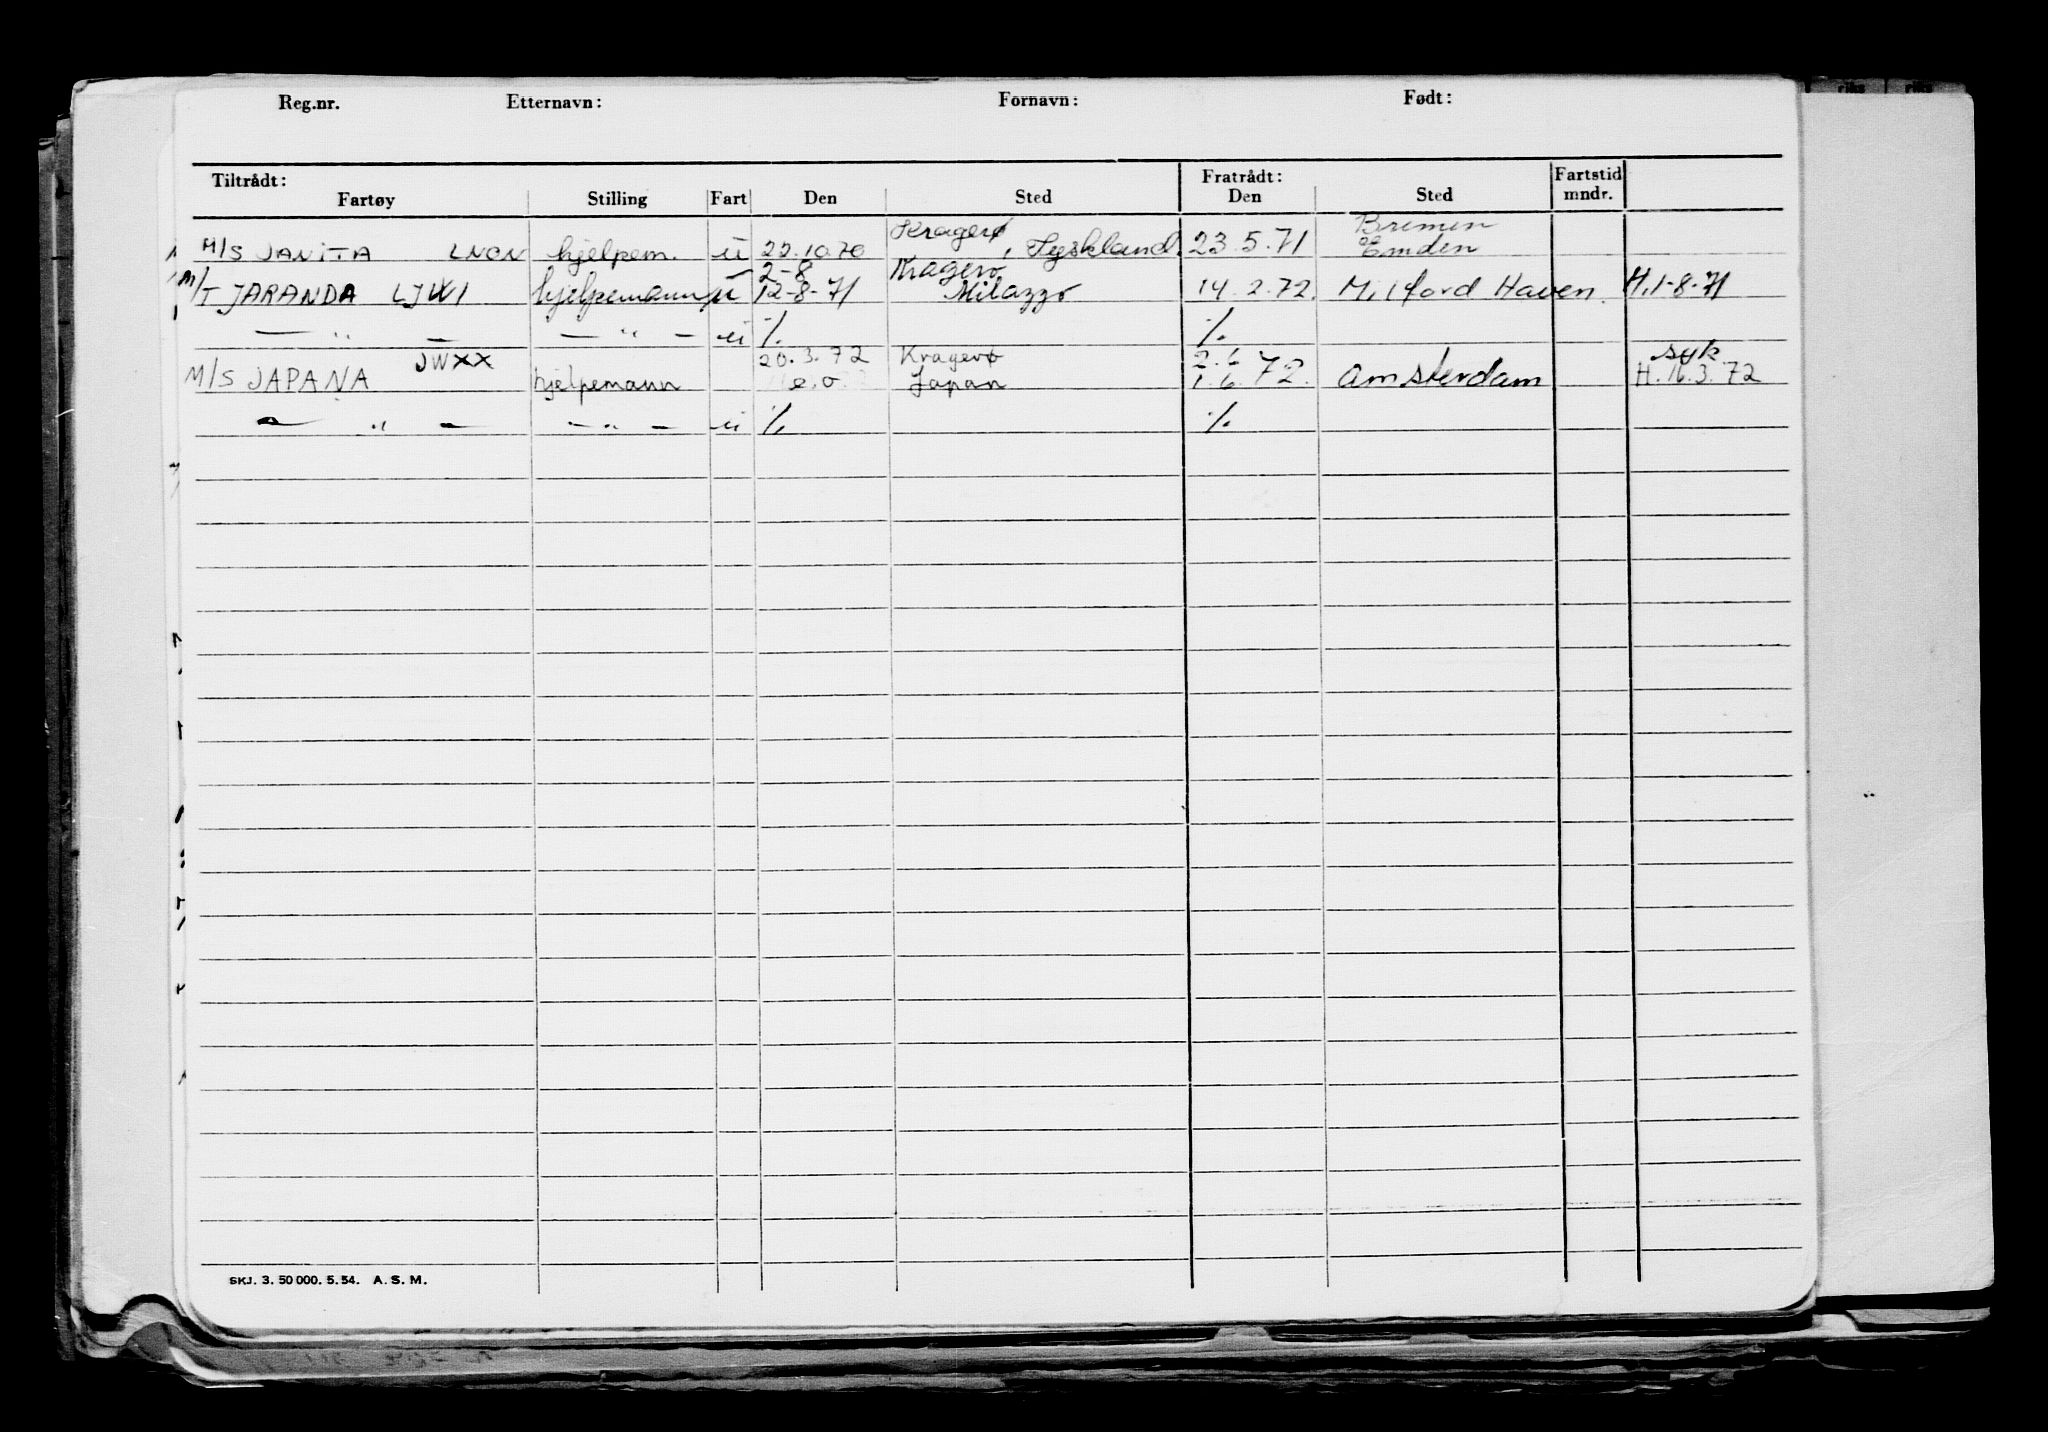 Reg.nr. Etternavn: Fornavn: Født:
Tiltrådt: Fratrådt: Fartstid
Fartøy Stilling Fart Den Sted Den Sted mndr.
Kragerø Bremen
M/S JANITA LNON hjelpem. u 22.10.70 , Tyskland. 23.5.71 Emden
2-8 Kragerø
M/T JARANDA LJWI hjelpemann u 12-8-71 Milazzo 14.2.72. Milford Haven. H.1-8-71
— " — — " — u %. %.
JWXX 20.3.72 Kragerø 2.6 syk
M/S JAPANA hjelpemann e.o. Japan 1.6 72. Amsterdam H.16.3.72
— " — — " — u %. %.
SKJ. 3. 50 000. 5. 54. A. S. M.